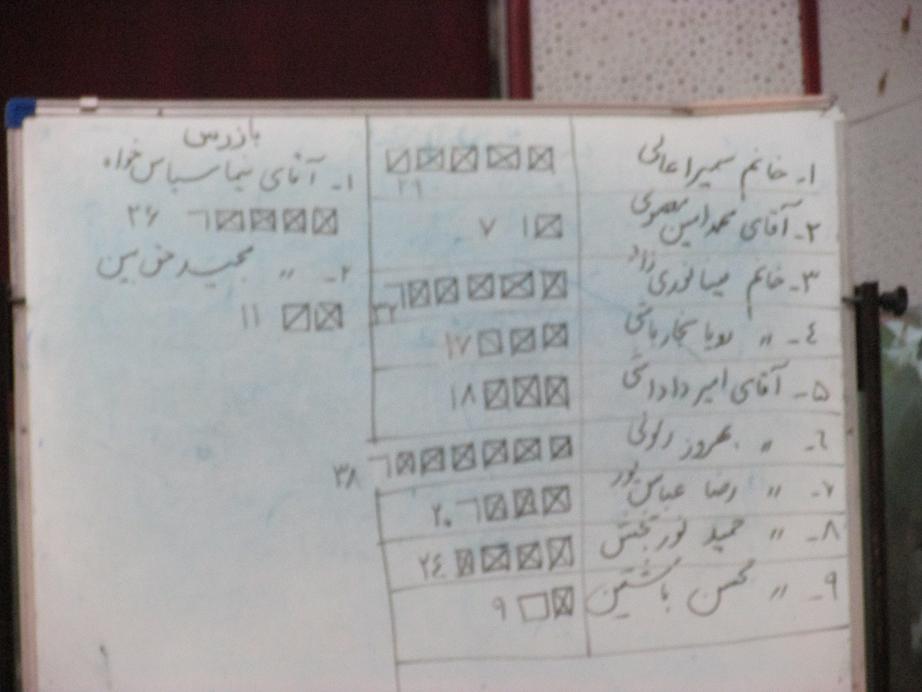 ۱- خانم سمیرا عالی ۲۹
۲- آقای محمدامین ۷
۳- خانم مینا نوری زاد ۳۲
۴- " ۱۷
۵- آقای امیر ۱۸
۶- " بهروز ۳۸
۷- " رضا عباس پور ۲۰
۸- " حمید نوربخش ۲۴
۹- " محسن ۹
بازرس
۱- آقای نیما سپاس خواه
۲۶
۲- " مجید حق بین
۱۱